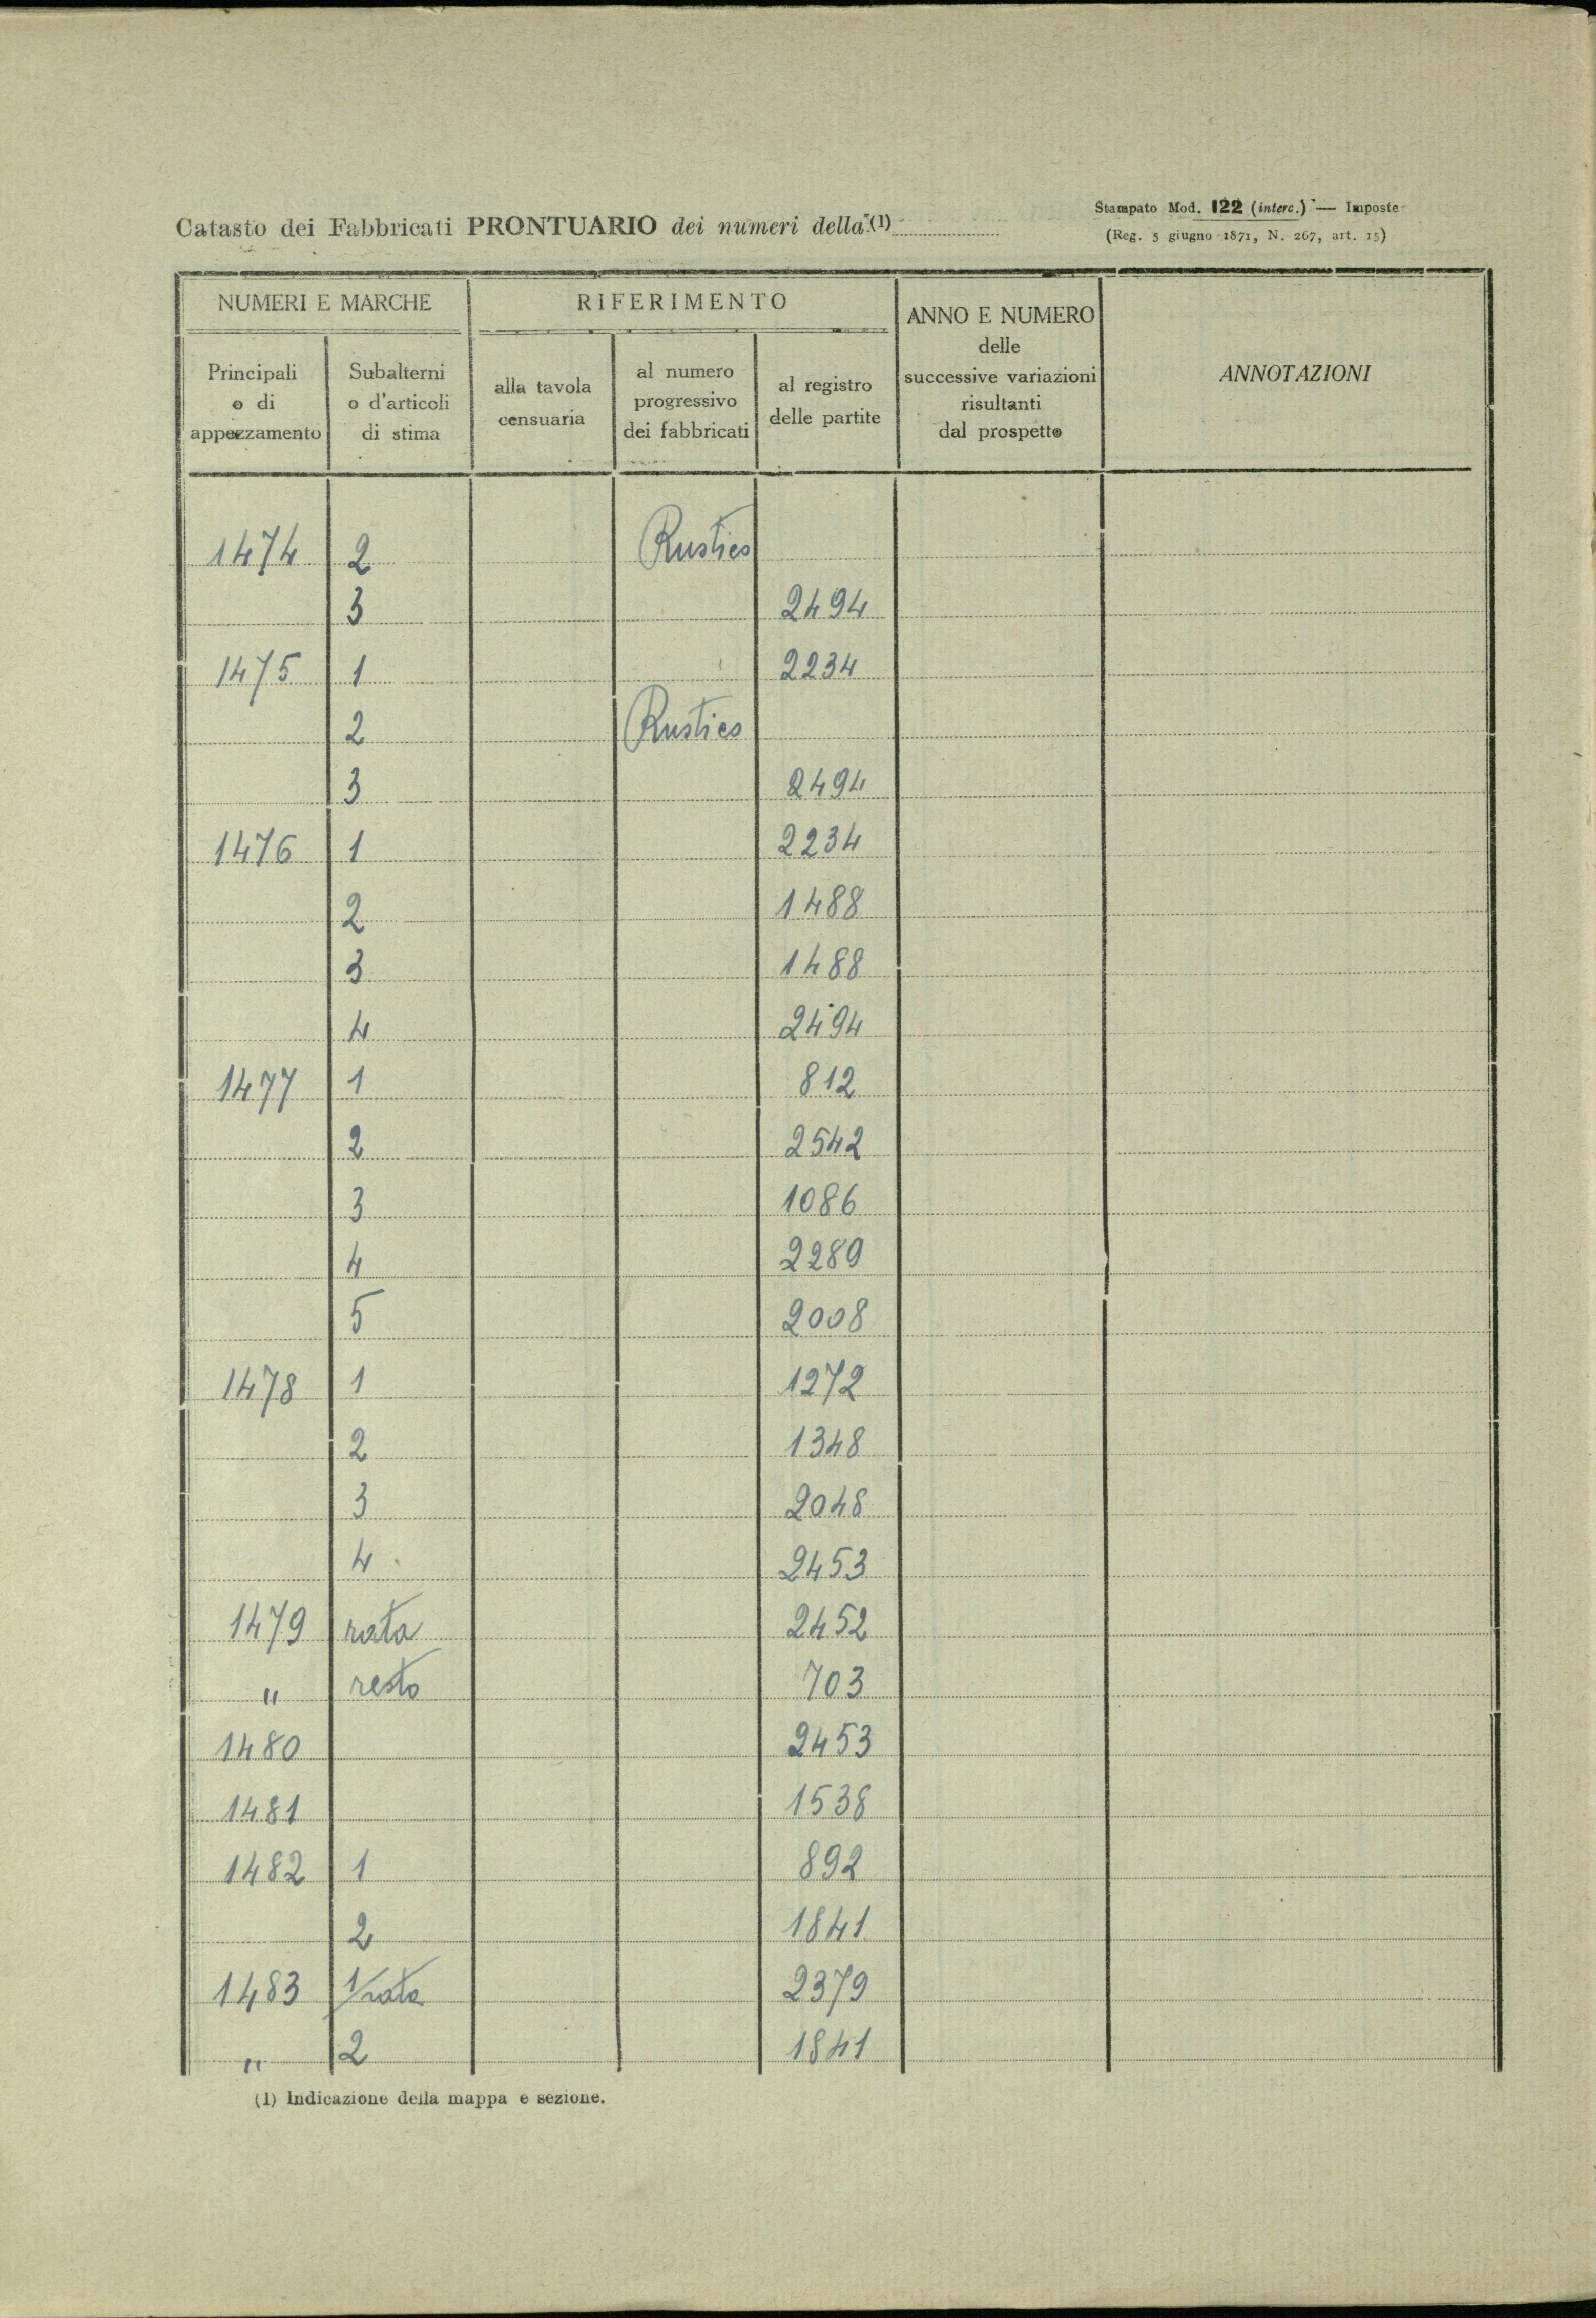 Catasto dei Fabbricati PRONTUARIO dei numeri della (1)
Stampato Mod. 122 (interc.) — Imposte
(Reg. 5 giugno 1871, N. 267, art. 15)
NUMERI E MARCHE
RIFERIMENTO
ANNO E NUMERO
delle
successive variazioni
risultanti
dal prospetto
ANNOTAZIONI
Principali
o di
appezzamento
Subalterni
o d'articoli
di stima
alla tavola
censuaria
al numero
progressivo
dei fabbricati
al registro
delle partite
1474 2 Rustico
3 2494
1475 1 2234
2 Rustico
3 2494
1476 1 2234
2 1488
3 1488
4 2494
1477 1 812
2 2542
3 1086
4 2289
5 2008
1478 1 1272
2 1348
3 2048
4 2453
1479 rata 2452
" resto 703
1480 2453
1481 1538
1482 1 892
2 1841
1483 1/rata 2379
" 2 1841
(1) Indicazione della mappa e sezione.